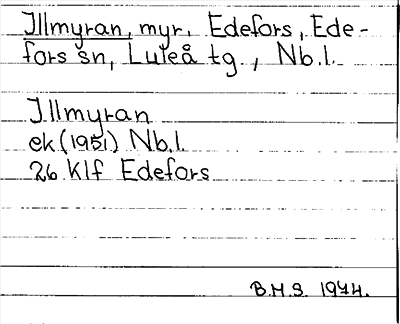 Illmyran, myr, Edefors, Ede-
fors sn, Luleå tg., Nb.l.
Illmyran
ek (1951) Nb.l.
26 Klf Edefors
B.M.S. 1974.